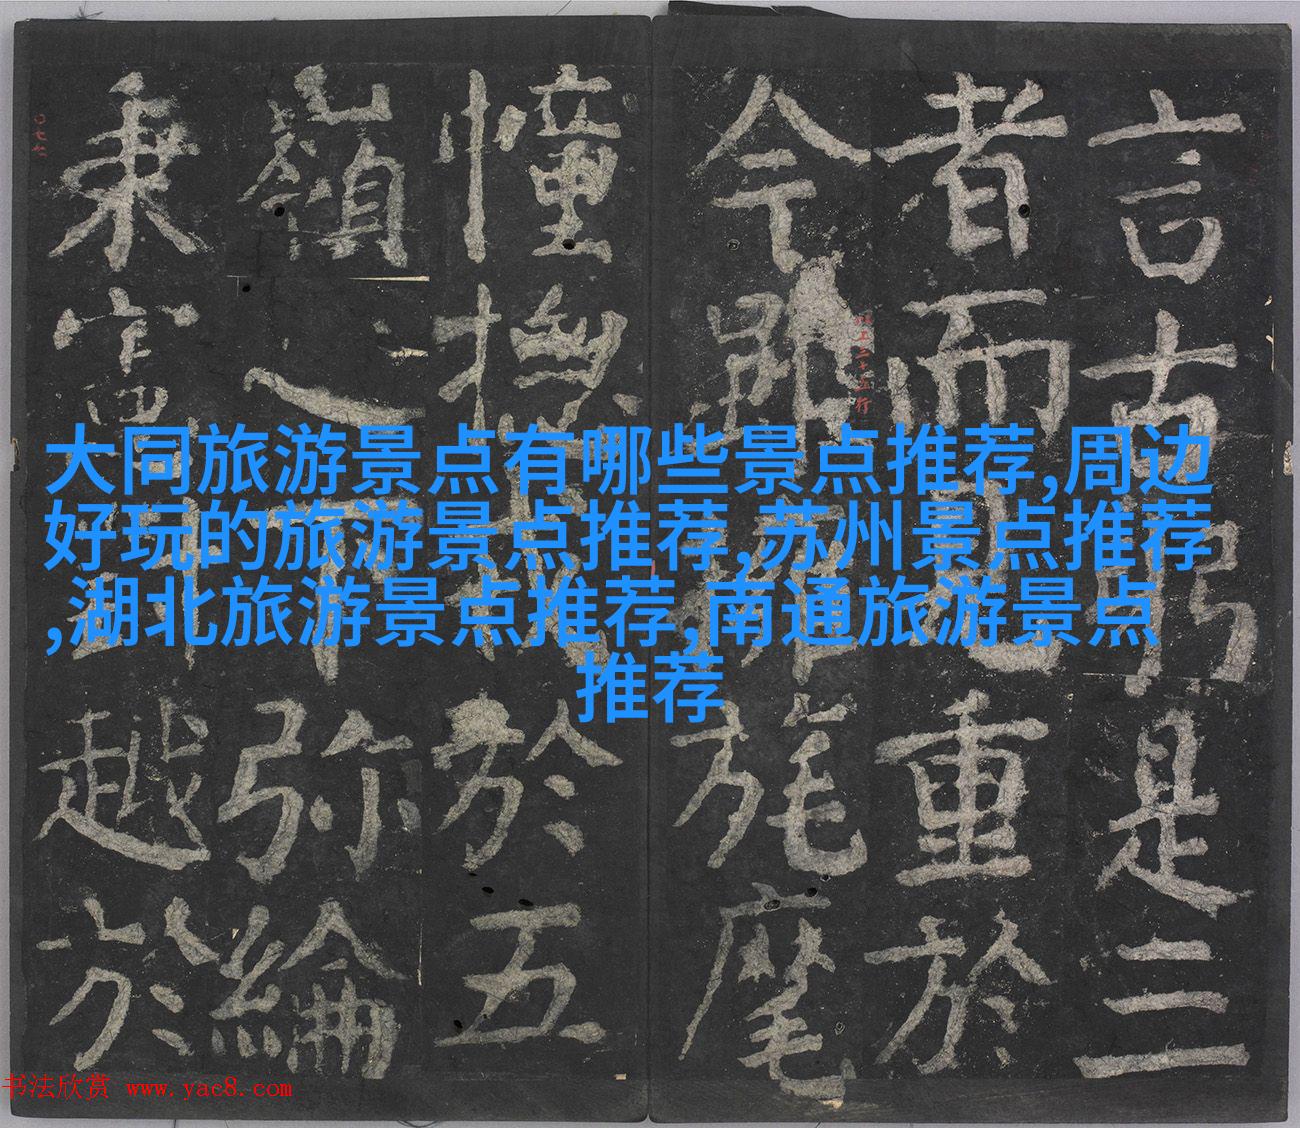 大同旅游景点有哪些景点推荐,周边
好玩的旅游景点推荐,苏州景点推荐
,湖北旅游景点推荐,南通旅游景点
推荐
言古是三
者而重於
今旄麾
憧撫於五
嶺之下弥綸
秉越於
书法欣赏 www.yac8.com